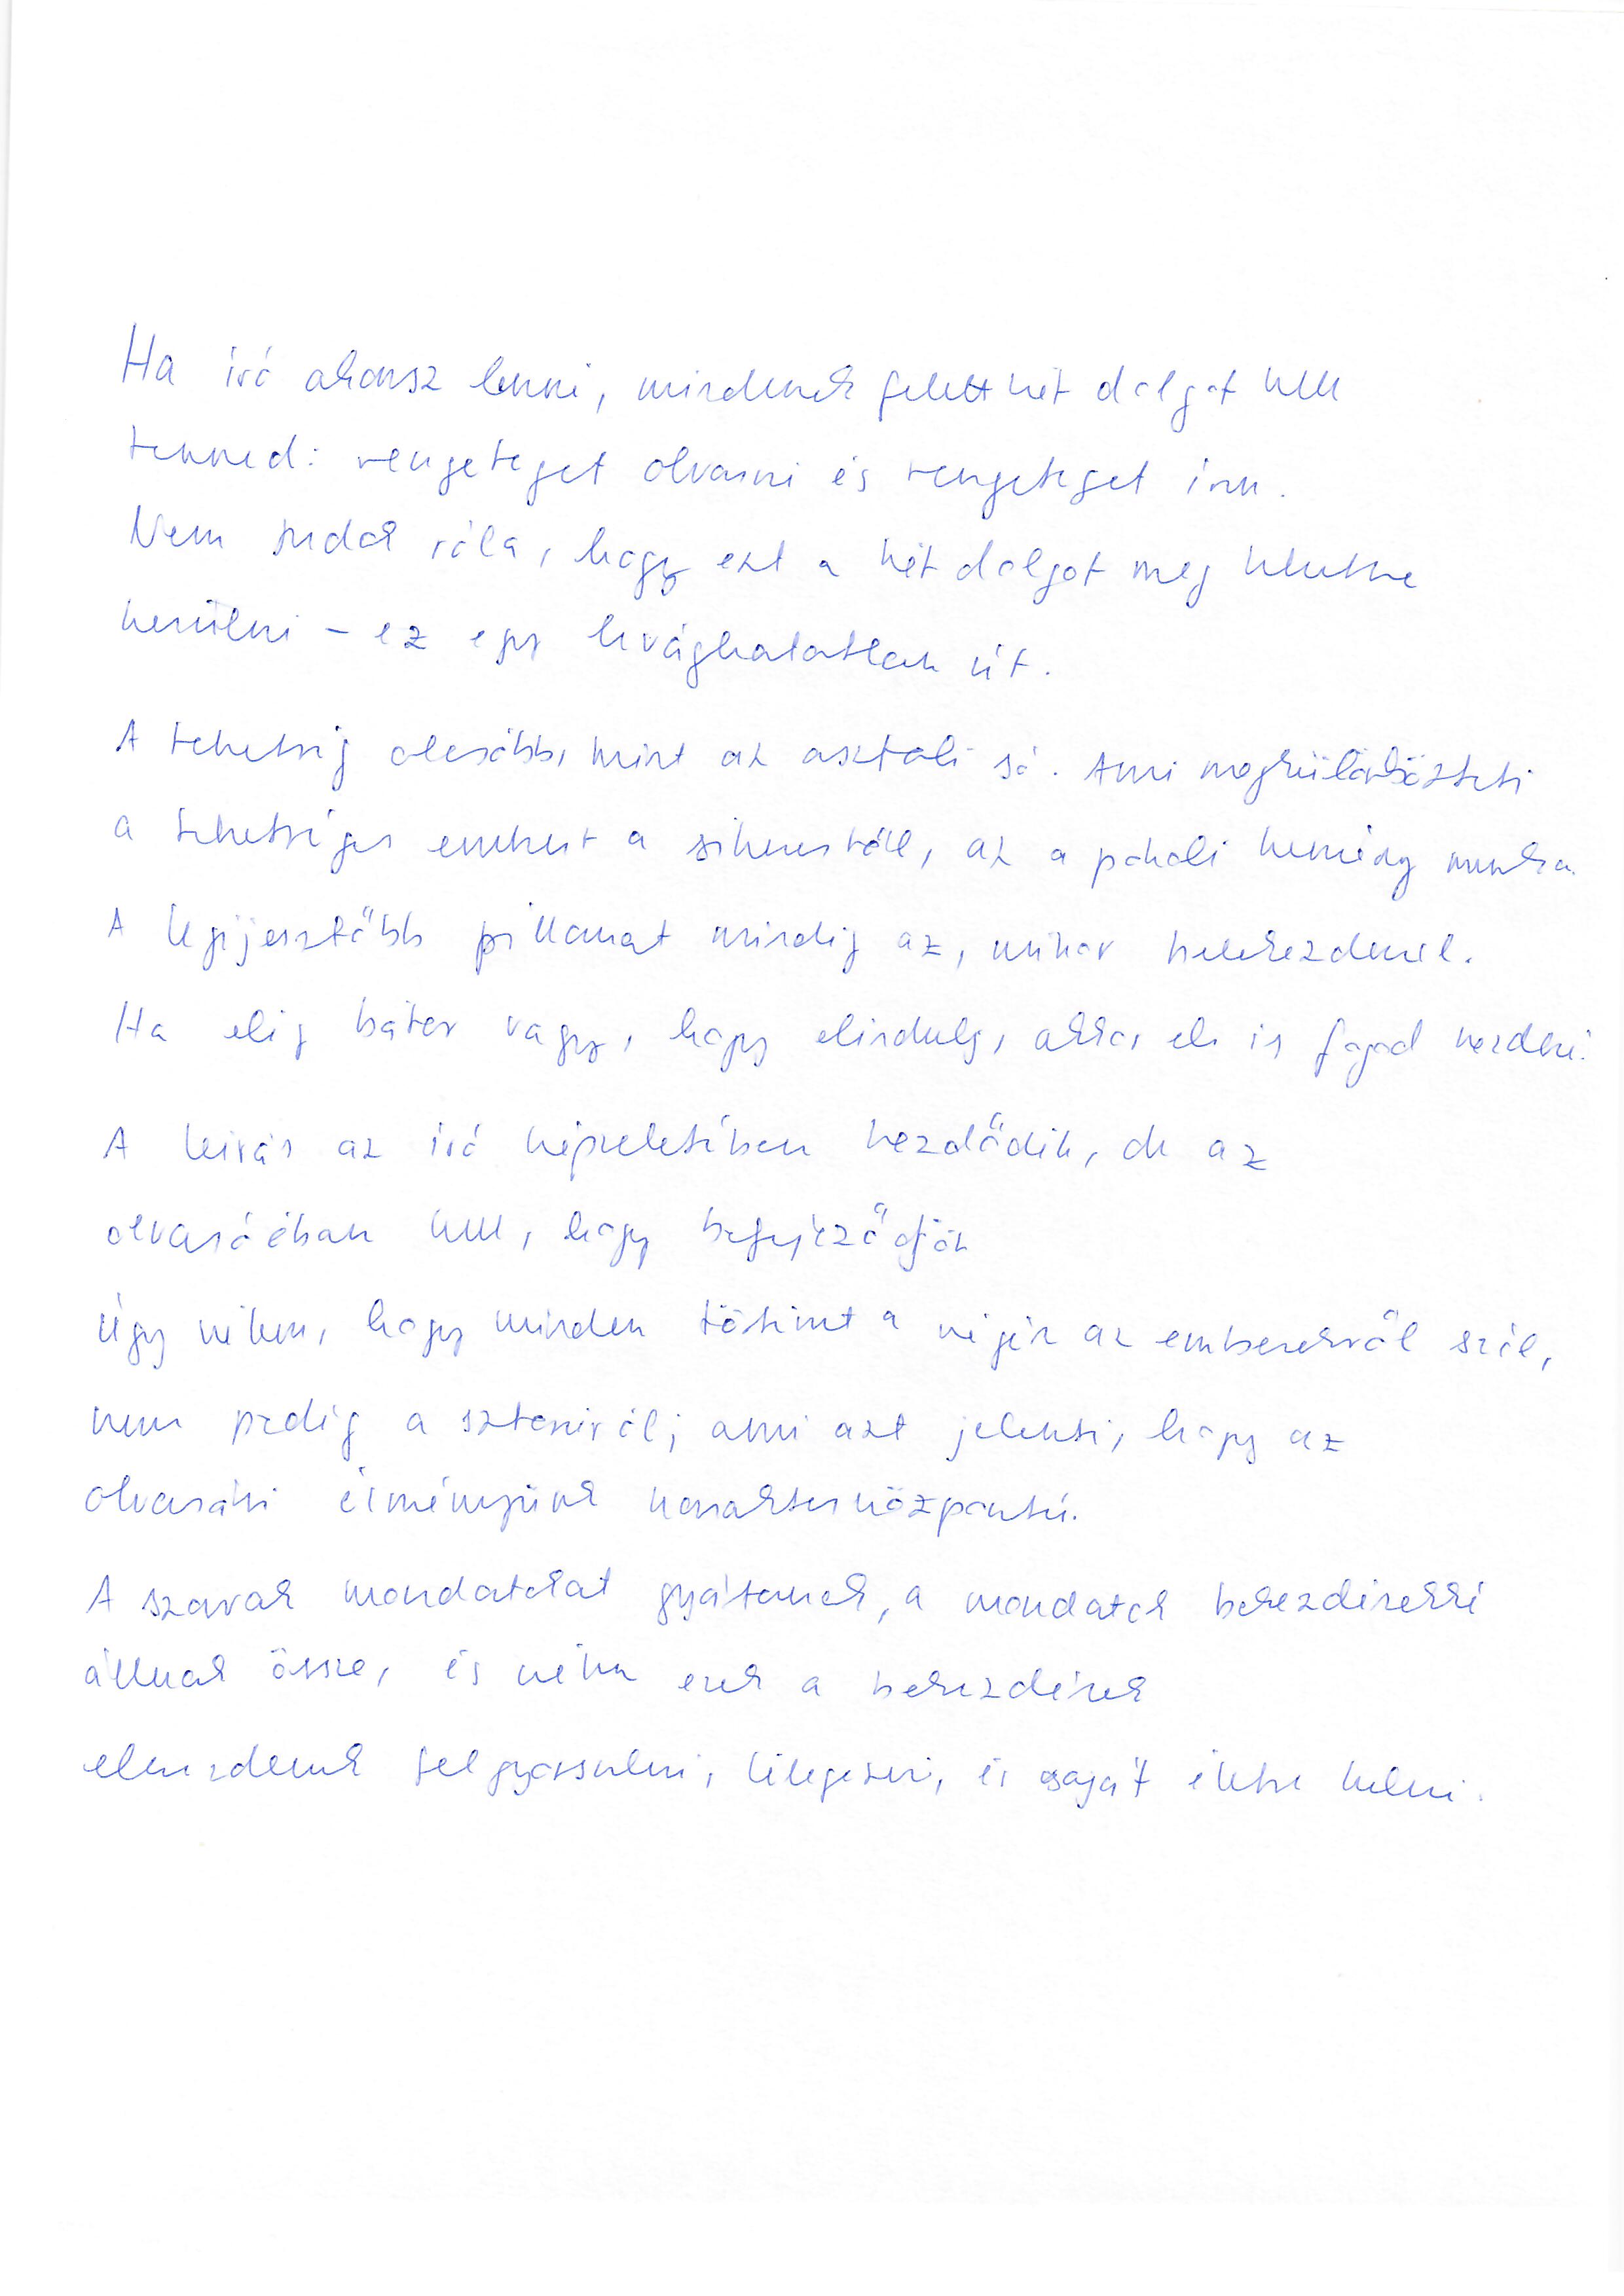 Ha író akarsz lenni, mindenek felett két dolgot kell
tenned: rengeteget olvasni és rengeteget írni.
Nem tudok róla, hogy ezt a két dolgot meg lehetne
kerülni – ez egy levághatatlan út.
A tehetség olcsóbb, mint az asztali só. Ami megkülönbözteti
a tehetséges embert a sikerestől, az a pokoli kemény munka.
A legijesztőbb pillanat mindig az, mikor belekezdenél.
Ha elég bátor vagy, hogy elindulj, akkor el is fogod kezdeni.
A leírás az író képzeletében kezdődik, de az
olvasóéban kell, hogy befejeződjön
Úgy vélem, hogy minden történet a végén az emberekről szól,
nem pedig a sztoriról; ami azt jelenti, hogy az
olvasási élményünk karakterközpontú.
A szavak mondatokat gyártanak, a mondatok bekezdésekké
állnak össze, és néha ezek a bekezdések
elkezdenek felgyorsulni, lélegezni, és saját életre kelni.